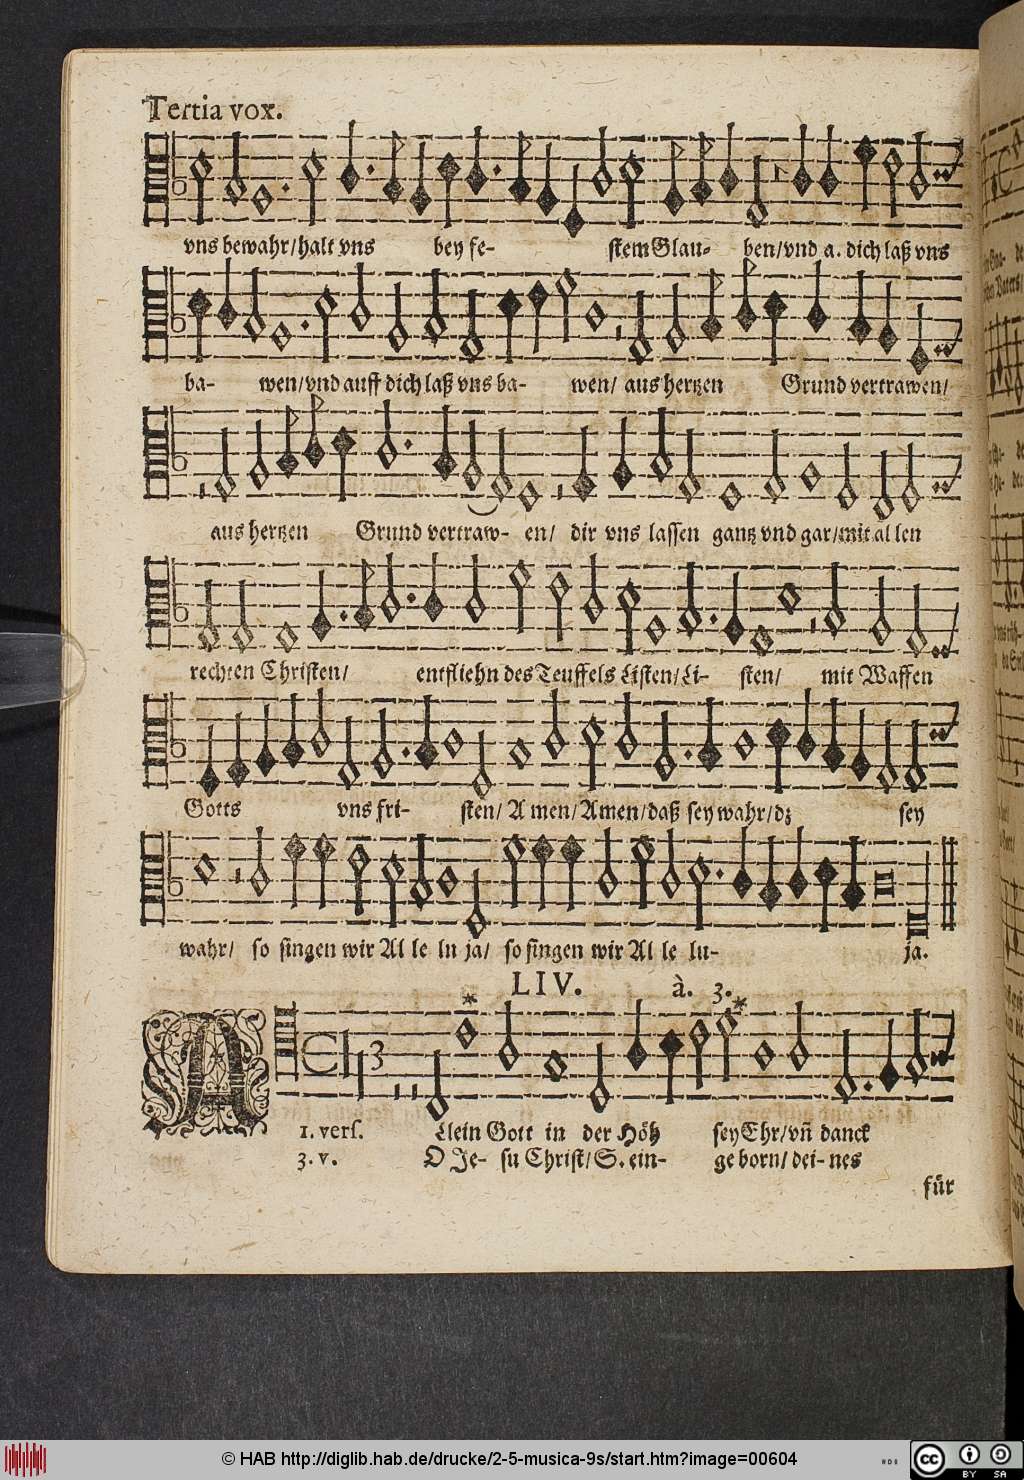 Tertia vox.
vns bewahr/halt vns bey fe- stem Glau- ben/vnd a. dich laß vns
ba- wen/vnd auff dich laß vns ba- wen/ aus hertzen Grund vertrawen/
aus hertzen Grund vertraw- en/ dir vns lassen gantz vnd gar/mit al len
rechten Christen/ entfliehn des Teuffels Listen/Li- sten/ mit Waffen
Gotts vns fri- sten/ A men/Amen/daß sey wahr/dz sey
wahr/ so singen wir Al le lu ja/ so singen wir Al le lu- ja.
LIV. à. 3.
A
1. vers. Llein Gott in der Höh sey Ehr/vñ danck
3. v. O Je- su Christ/S. ein- ge born/dei- nes
für
© HAB http://diglib.hab.de/drucke/2-5-musica-9s/start.htm?image=00604
cc BY SA